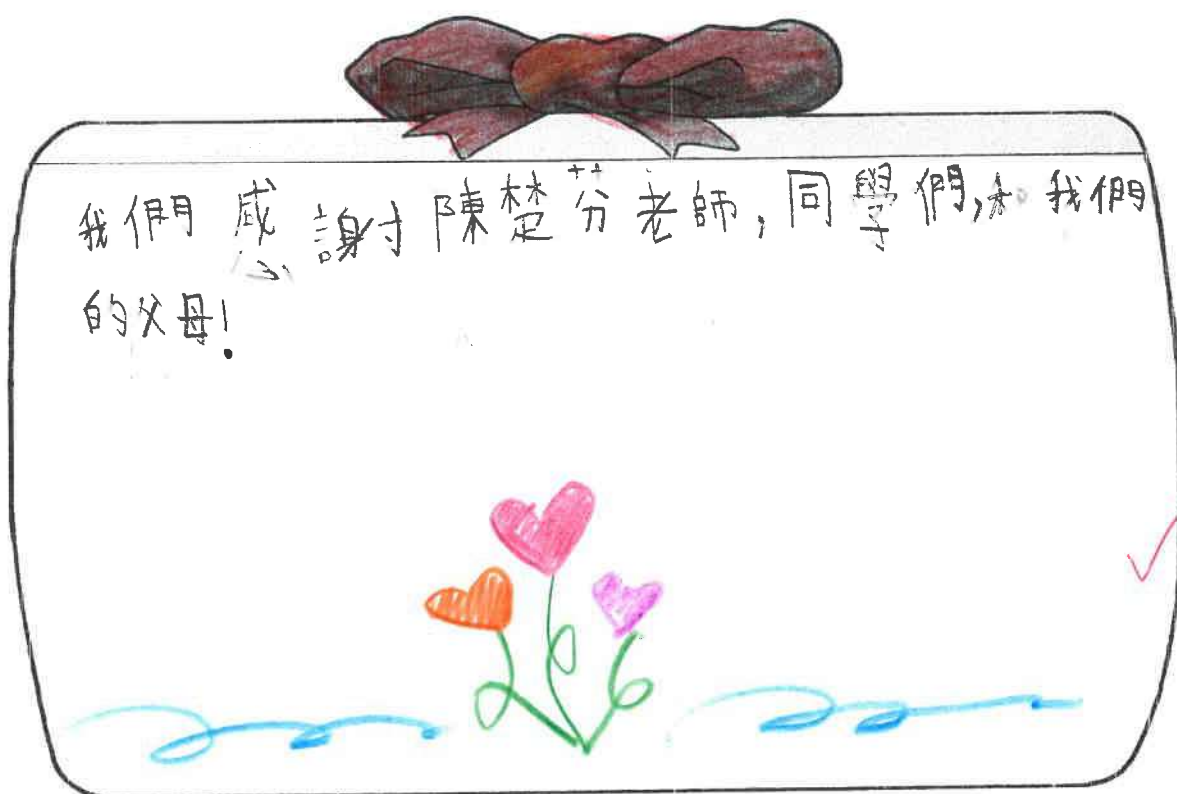 我們感謝陳楚芬老師,同學們,和我們
的父母!